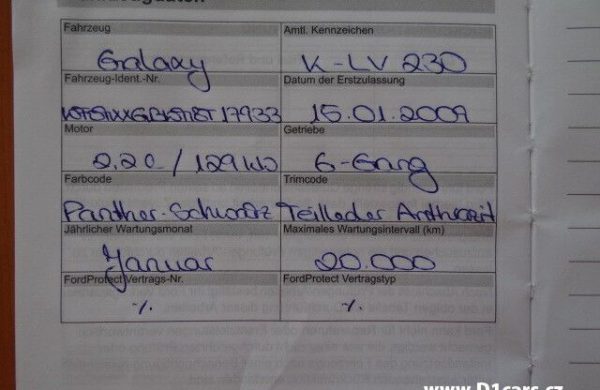 Fahrzeug Amtl. Kennzeichen
Galaxy K-LV 230
Fahrzeug-Ident.-Nr. Datum der Erstzulassung
15.01.2009
Motor Getriebe
2,2l / 129kW 6-Gang
Farbcode Trimcode
Panther-Schwarz Teilleder Anthrazit
Jährlicher Wartungsmonat Maximales Wartungsintervall (km)
Januar 20.000
FordProtect Vertrags-Nr. FordProtect Vertragstyp
./. ./.
www.D1cars.cz